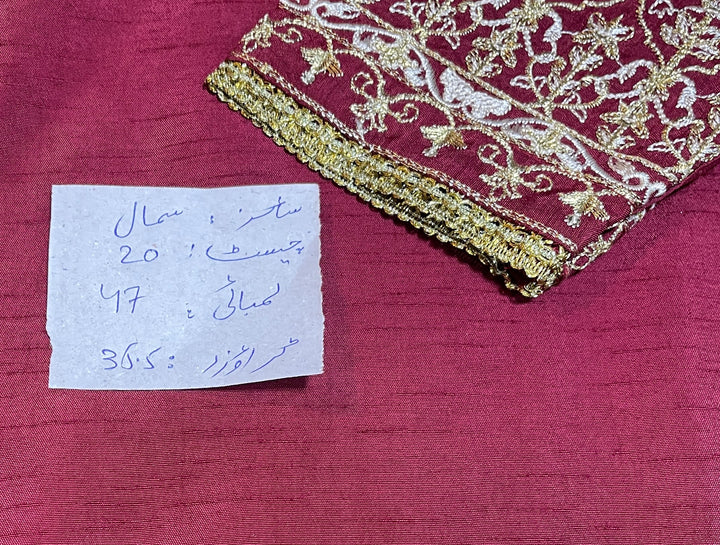 سائز : سمال
چیسٹ : 20
لمبائی : 47
ٹراؤزر : 36.5